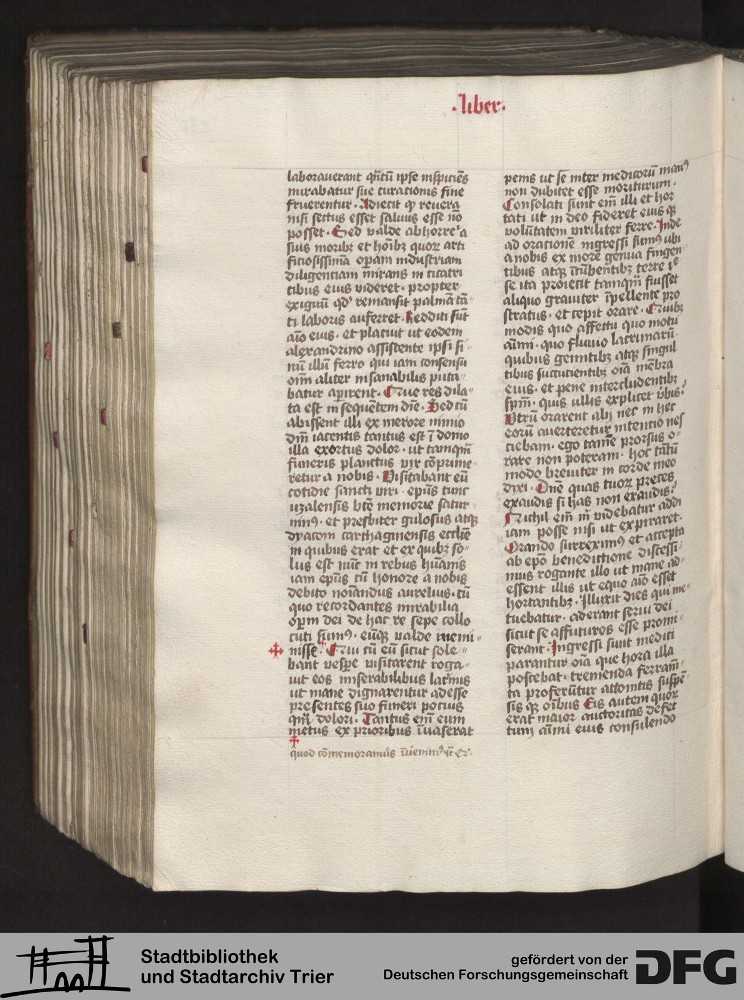 ·liber·
laborauerant qn̄tū ipse inspiciēs
mirabatur sue curationis fine
fruerentur · Adiecit q̄ reuera
nisi sectus esset saluus esse nō
posset · Sed valde abhorret a
suis moribꝫ et hōibꝫ quoꝝ arti
ficiosissimā opam industriam
diligentiam mirans in cicatri
cibus eius videret · propter
exiguū qd̓ remansit palmā tā
ti laboris auferret · Redditi sūt
aīo eius · et placuit ut eodem
alexandrino assistente ipsi si
nū illū ferro qui iam consensu
oīm aliter insanabilis puta
batur aperirent · Que res dila
ta est in sequētem diē · Sed cū
abissent illi ex merore nimio
dn̄i iacentis tantus est ī domo
illa exortus dolor · ut tamqm̄
funeris planctus vix cōprime
retur a nobis · Visitabant eū
cotidie sancti viri · ep̄us tunc
uzalensis bt̄e memorie satur
ninꝰ · et presbiter gulosus atqꝫ
dyacom carthaginensis eccl̄ie
in quibus erat et ex quibꝫ so
lus est nūc in rebus hūanis
iam ep̄us cū honore a nobis
debito noīandus aurelius · cū
quo recordantes mirabilia
opm̄ dei de hac re sepe collo
cuti sumꝰ · eūqꝫ valde memi
nisse · Qui cū eū sicut sole
bant vesp̄e visitarent roga
uit eos miserabilibus lacrīnis
ut mane dignarentur adesse
presentes suo funeri pocius
qm̄ dolori · Tantus em̄ eum
metus ex prioribus īuaserat
quod cōmemoramus īuenimꝰ
penis ut se inter medicorū manꝰ
non dubitet esse moriturum ·
Consolati sunt em̄ illi et hor
tati ut in deo fideret eius qꝫ
volūtatem viriliter ferre · Inde
ad orationē ingressi sumꝰ ubi
a nobis ex more genua fingen
tibus atqꝫ īcūbentibꝫ terre ie
se ita proiecit tamqm̄ fuisset
aliquo grauiter īpellente pro
stratus · et cepit orare · Quibꝫ
modis quo affectu quo motu
aīmi · quo fluuio lacrimarū
quibus gemitibꝫ atqꝫ singul
tibus succucientibꝫ oīa mēbra
eius · et pene intercludentibꝫ
spm̄ · quis ullis explicet v̄bis ·
Vtrū orarent alij nec in hec
eorū auerteretur intentio nes
ciebam · ego tamē prorsus o
rare non poteram · hoc tātū
modo breuiter in corde meo
dixi · Dn̄e quas tuoꝝ preces
exaudis si has non exaudis ·
Nichil em̄ m̄ videbatur addi
iam posse nisi ut expiraret ·
Orando surreximꝰ et accepta
ab ep̄o benedictione discessi
mus rogante illo ut mane ad
essent illis ut equo aīo esset
hortantibꝫ · Illuxit dies qui me
tuebatur · aderant serui dei
sicut se affuturos esse promi
serant · Ingressi sunt medici
parantur oīa que hora illa
poscebat · tremenda ferram
ta proferūtur attonitis suspē
sis qꝫ oībus Eis autem quoꝝ
erat maior auctoritas defec
tum aīmi eius consulendo
Stadtbibliothek
und Stadtarchiv Trier
gefördert von der
Deutschen Forschungsgemeinschaft
DFG